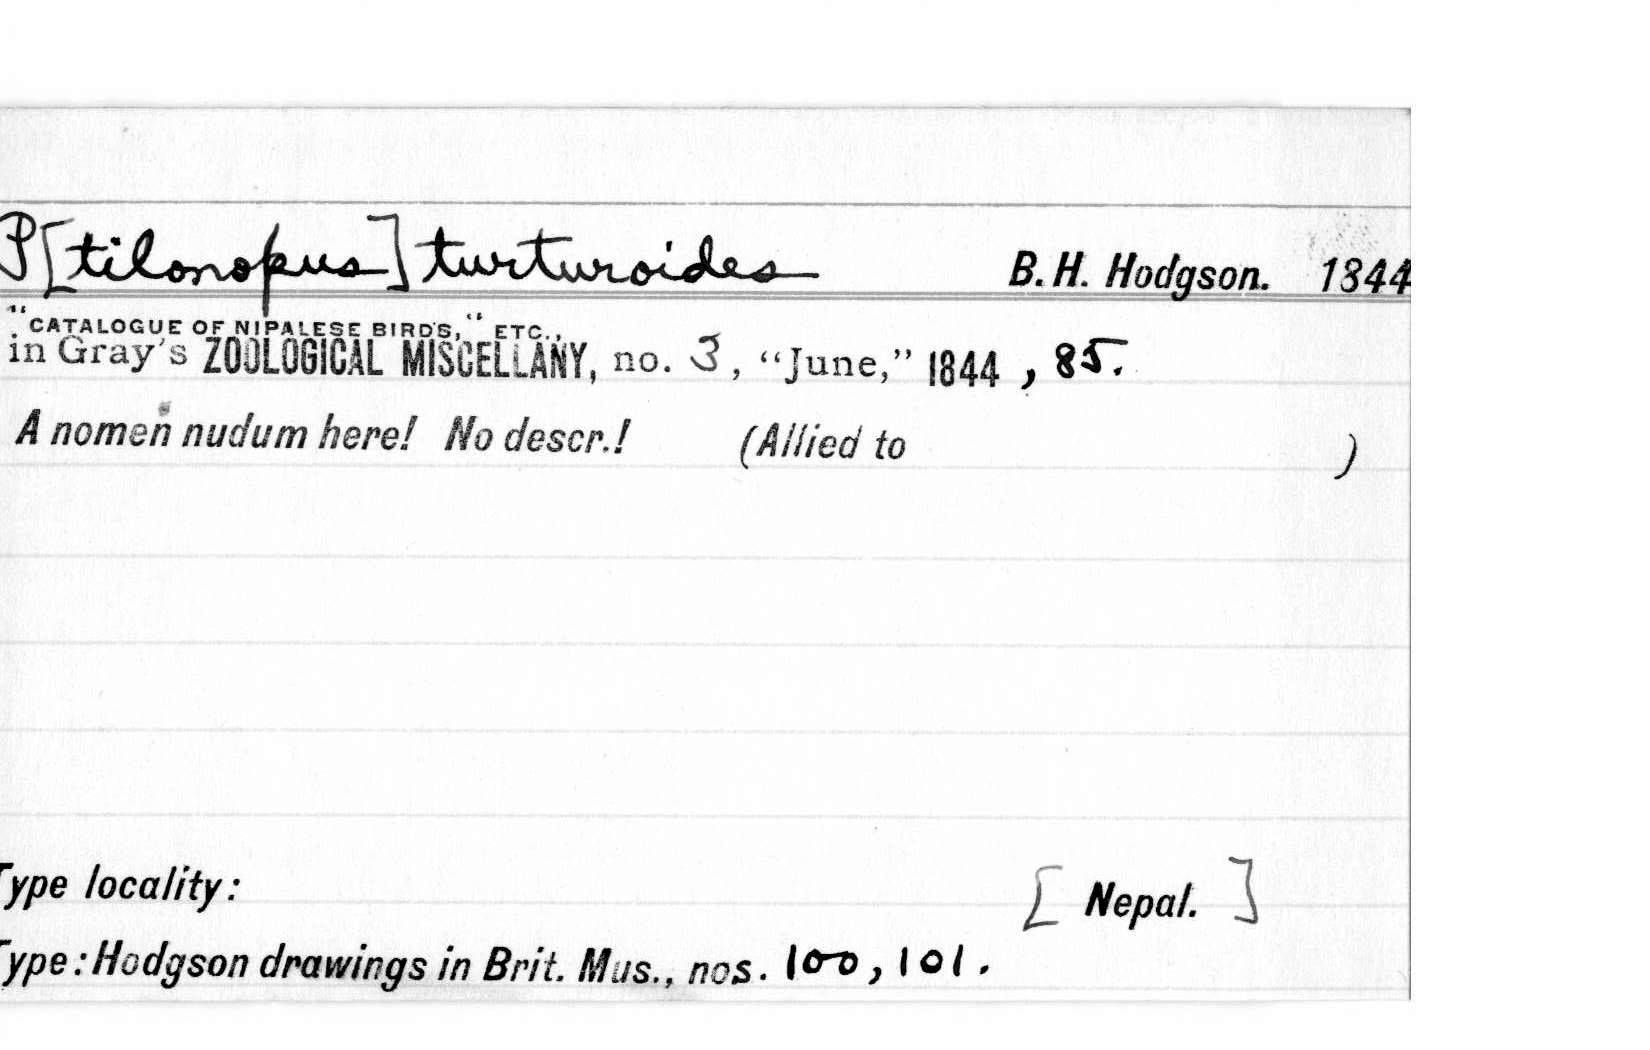 P[tilonopus] turturoides B. H. Hodgson. 1844
"CATALOGUE OF NIPALESE BIRDS," ETC.,
in Gray's ZOOLOGICAL MISCELLANY, no. 3, "June," 1844, 85.
A nomen nudum here! No descr.! (Allied to )
Type locality: [Nepal.]
Type: Hodgson drawings in Brit. Mus., nos. 100, 101.